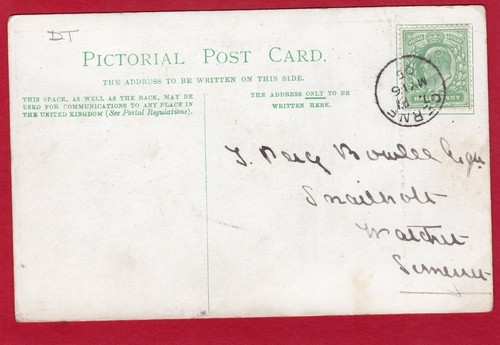 DT
PICTORIAL POST CARD.
THE ADDRESS TO BE WRITTEN ON THIS SIDE.
THIS SPACE, AS WELL AS THE BACK, MAY BE
USED FOR COMMUNICATIONS TO ANY PLACE IN
THE UNITED KINGDOM (See Postal Regulations).
THE ADDRESS ONLY TO BE
WRITTEN HERE.
CERNE
MY 16
Percy Esqr
Watchet
Somerset